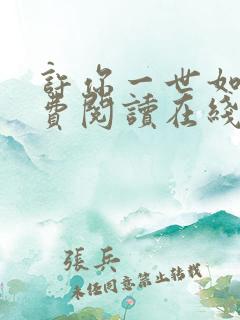 許你一世如
費閱讀在綫
張兵
未經同意禁止轉載